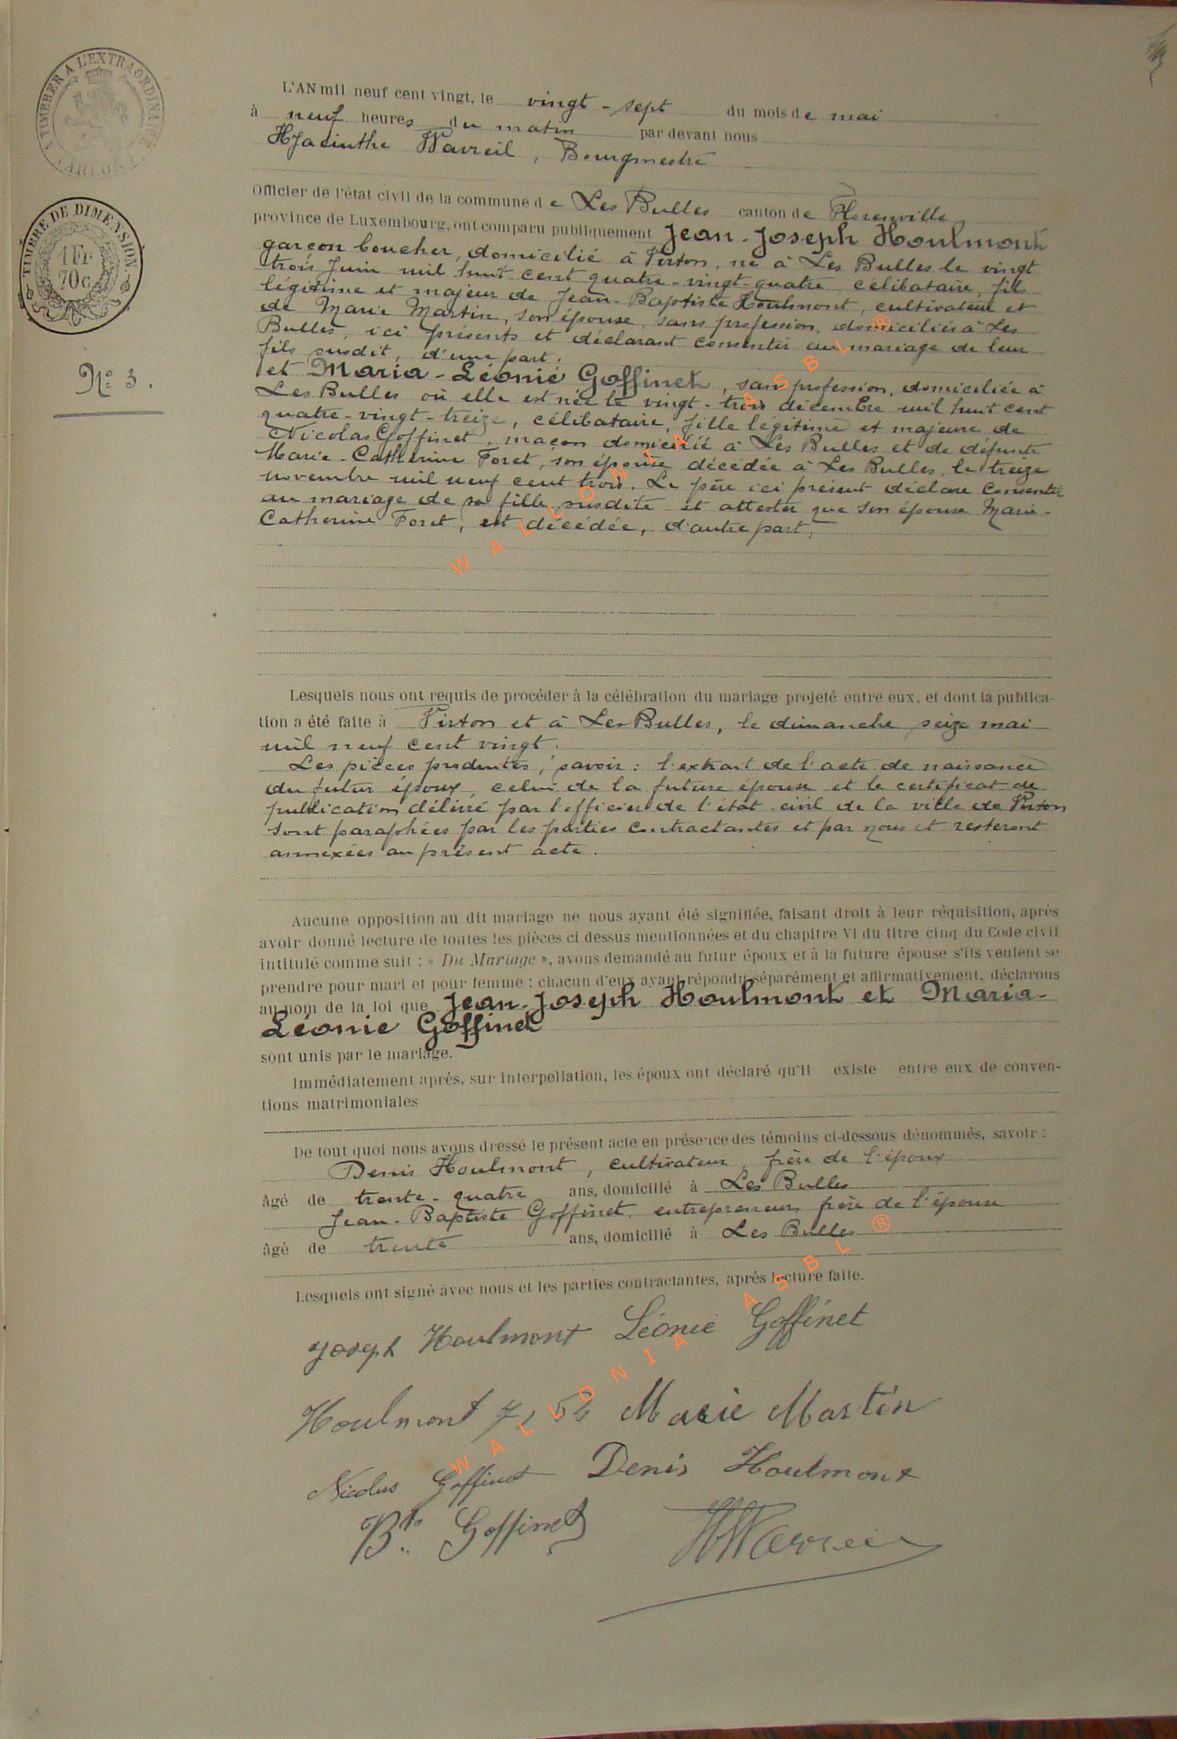 A TIMBRER A L'EXTRAORDINAIRE
ARLON
TIMBRE DE DIMENSION.
1 Fr
70c.
No 3.
L'AN mil neuf cent vingt, le vingt-sept du mois de mai
à neuf heures du matin par devant nous
Hyacinthe Wavreil, Bourgmestre
Officier de l'état civil de la commune de Les Bulles canton de Florenville
province de Luxembourg, ont comparu publiquement Jean-Joseph Houlmont
garçon boucher, domicilié à Virton, né à Les Bulles le vingt
trois Juin mil huit cent quatre-vingt-quatre, célibataire, fils
légitime et majeur de Jean-Baptiste Houlmont, cultivateur et
de Marie Martin, son épouse, sans profession, domiciliés à Les
Bulles, ici présents et déclarant consentir au mariage de leur
fils susdit, d'une part.
et Maria-Léonie Goffinet, sans profession, domiciliée à
Les Bulles où elle est née le vingt-trois décembre mil huit cent
quatre-vingt-treize, célibataire, fille légitime et majeure de
Nicolas Goffinet, maçon domicilié à Les Bulles et de défunte
Marie-Catherine Foret, son épouse décédée à Les Bulles, le treize
novembre mil neuf cent trois. Le père ici présent déclare consentir
au mariage de sa fille susdite et attester que son épouse Marie-
Catherine Foret, est décédée, d'autre part,
Lesquels nous ont requis de procéder à la célébration du mariage projeté entre eux, et dont la publica-
tion a été faite à Virton et à Les Bulles, le dimanche seize mai
mil neuf cent vingt.
Les pièces produites, savoir : l'extrait de l'acte de naissance
du futur époux, celui de la future épouse et le certificat de
publication délivré par l'officier de l'état civil de la ville de Virton
sont paraphées par les parties contractantes et par nous et resteront
annexées au présent acte.
Aucune opposition au dit mariage ne nous ayant été signifiée, faisant droit à leur réquisition, après
avoir donné lecture de toutes les pièces ci dessus mentionnées et du chapitre VI du titre cinq du Code civil
intitulé comme suit : « Du Mariage », avons demandé au futur époux et à la future épouse s'ils veulent se
prendre pour mari et pour femme ; chacun d'eux ayant répondu séparément et affirmativement, déclarons
au nom de la loi que Jean-Joseph Houlmont et Maria-
Léonie Goffinet
sont unis par le mariage.
Immédiatement après, sur interpellation, les époux ont déclaré qu'il existe entre eux de conven-
tions matrimoniales
De tout quoi nous avons dressé le présent acte en présence des témoins ci-dessous dénommés, savoir :
Denis Houlmont, cultivateur, frère de l'époux
âgé de trente-quatre ans, domicilié à Les Bulles
Jean-Baptiste Goffinet, entrepreneur, frère de l'épouse
âgé de trente ans, domicilié à Les Bulles
Lesquels ont signé avec nous et les parties contractantes, après lecture faite.
Joseph Houlmont Léonie Goffinet
Houlmont Marie Martin
Nicolas Goffinet Denis Houlmont
Bte Goffinet HWavreil
WALLONIA ASBL ®
WALLONIA ASBL ®